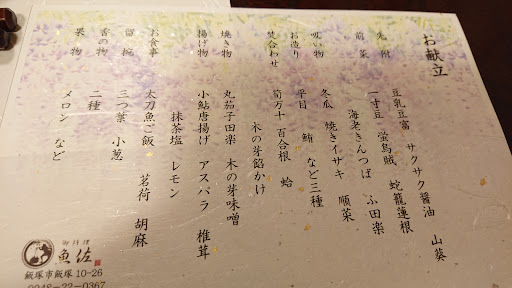 お献立
先附 豆乳豆富 サクサク醤油 山葵
前菜 一寸豆 蛍烏賊 蛇籠蓮根
海老きんつば ふ田楽
吸い物 冬瓜 焼きイサキ 順菜
お造り 平目 鮪 など三種
焚合わせ 筍万十 百合根 蛤
木の芽餡かけ
焼き物 丸茄子田楽 木の芽味噌
揚げ物 小鮎唐揚げ アスパラ 椎茸
抹茶塩 レモン
お食事 太刀魚ご飯 茗荷 胡麻
留椀 三つ葉 小葱
香の物 二種
果物 メロン など
御料理
魚佐
飯塚市飯塚10-26
0948-22-0367